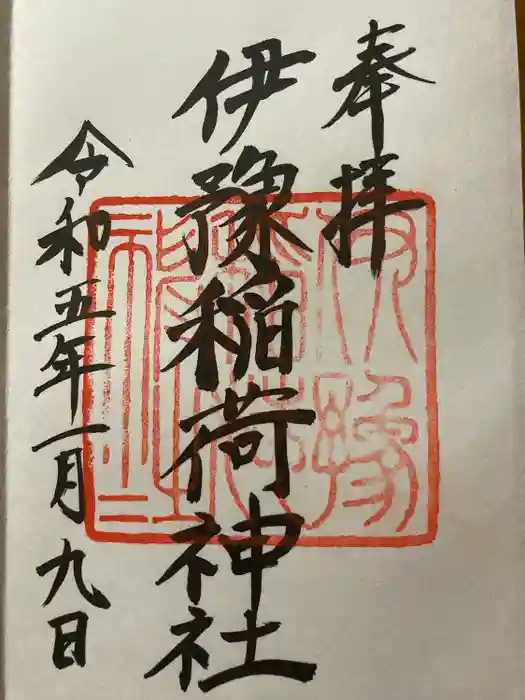 奉拝
伊豫稲荷神社
令和五年一月九日